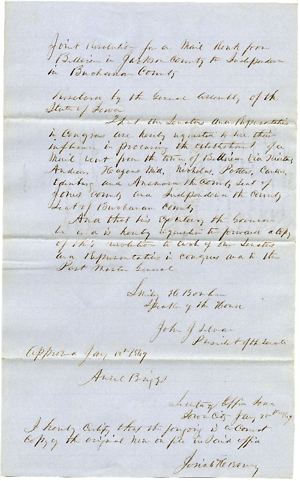 Joint Resolution for a Mail Route from
Bellevue in Jackson County to Independence
in Buchanan County
Resolved by the General Assembly of the
State of Iowa
That our Senators and Representatives
in Congress are hereby requested to use their
influence in procuring the establishment of a
Mail rout from the town of Bellevue Via
Andrew
Edinburg and Anamosa the County Seat of
Jones County and Independence the County
Seat of Buchanan County
And that his Excellency the Governor
be and is hereby requested to forward a Copy
of this resolution to each of our Senators
and Representatives in Congress and to the
Post Master General
Smiley H Bonham
Speaker of the House
John J Selman
President of the Senate
Approved Jany
Ansel Briggs
Secretary Office Iowa
Iowa City Jany
I hereby Certify that the foregoing is a Correct
Copy of the original now on file in said office
Josiah H Bonney